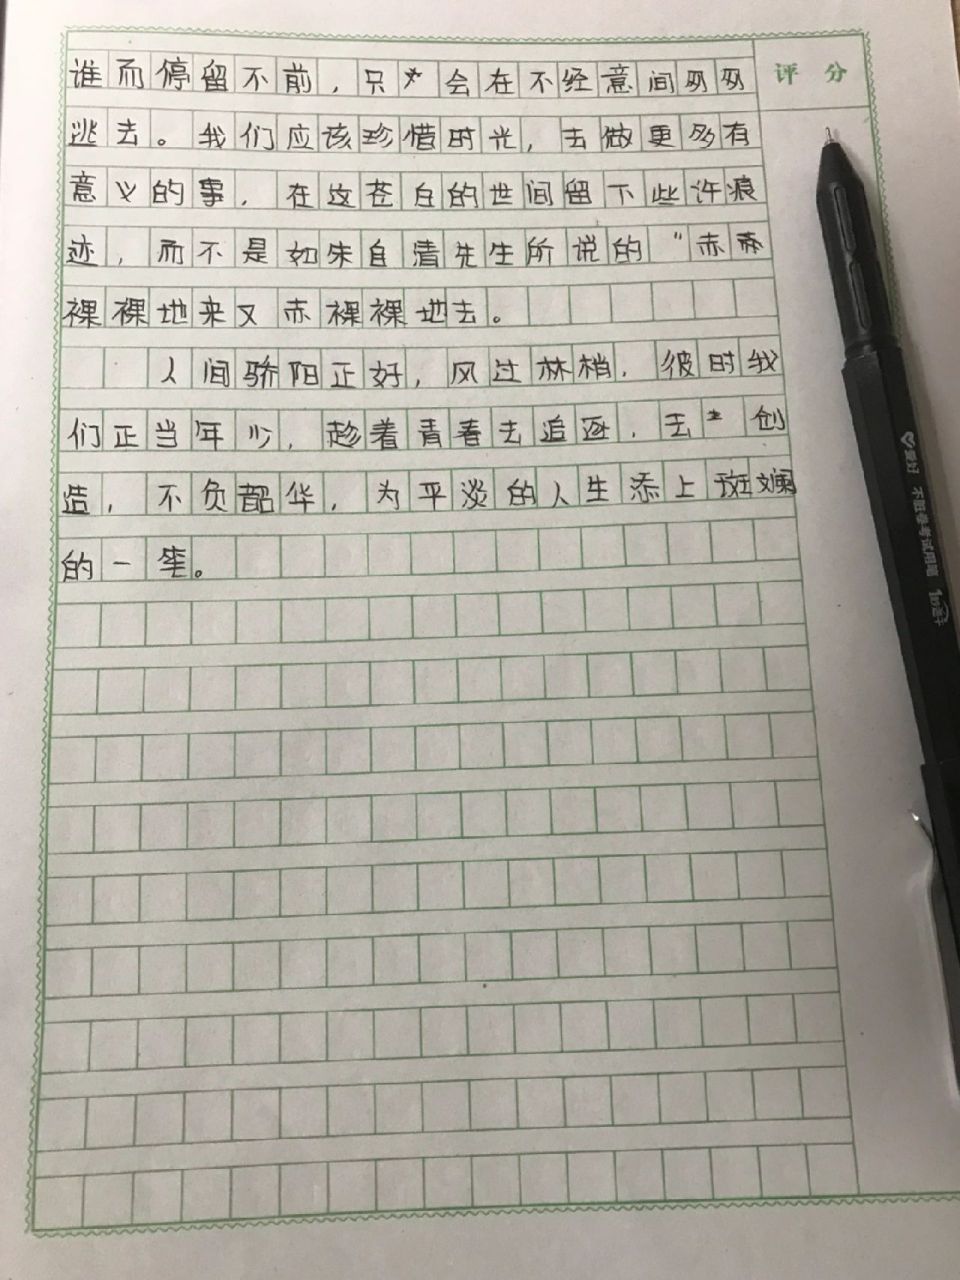 谁而停留不前，只会在不经意间匆匆
评 分
逃去。我们应该珍惜时光，去做更多有
意义的事，在这苍白的世间留下些许痕
迹，而不是如朱自清先生所说的“赤赤
裸裸地来又赤裸裸地去。
人间骄阳正好，风过林梢，彼时我
们正当年少，趁着青春去追逐，去创
造，不负韶华，为平淡的人生添上斑斓
的一笔。
爱好 不断卷考试用笔